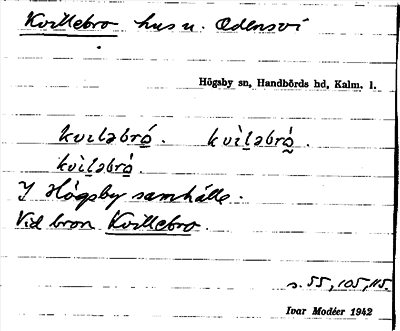 Kvillebro hus u. Odensvi
Högsby sn, Handbörds hd, Kalm. l.
kvıləbró̱. kvìḻəbrò̰.
kvìḻəbrò̱.
I Högsby samhälle.
Vid bron Kvillebro.
s. 55, 105, 115.
Ivar Modéer 1942